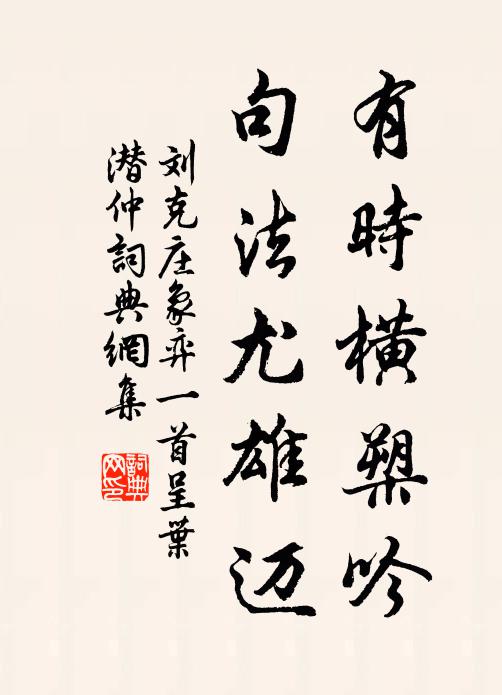 有時橫槊吟
句法尤雄迈
刘克庄象弈一首呈葉
潛仲詞典網集
詞典
网印